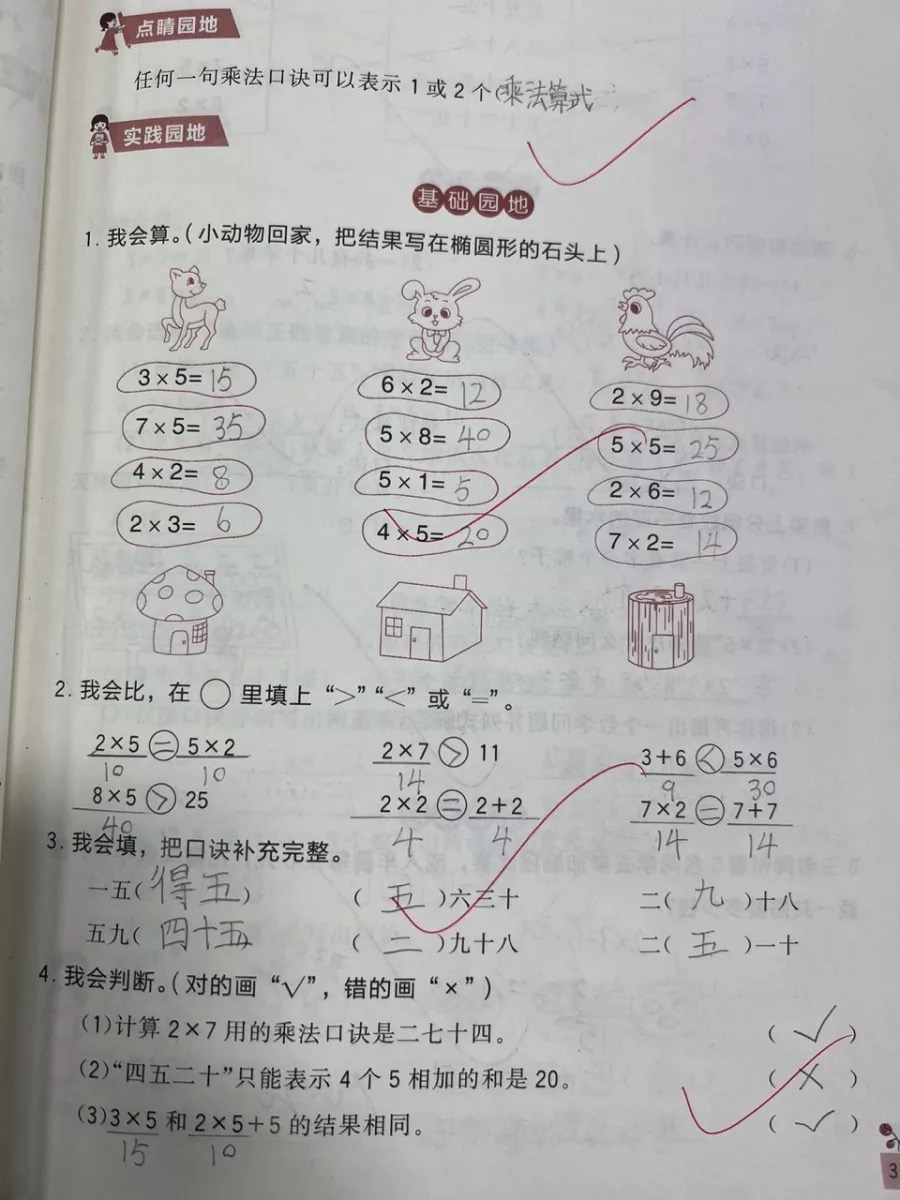 点睛园地
任何一句乘法口诀可以表示 1 或 2 个(乘法算式)
实践园地
基础园地
1. 我会算。(小动物回家，把结果写在椭圆形的石头上)
3×5=15 6×2=12 2×9=18
7×5=35 5×8=40 5×5=25
4×2=8 5×1=5 2×6=12
2×3=6 4×5=20 7×2=14
2. 我会比，在 ○ 里填上 “>”“<” 或 “=”。
2×5 = 5×2 2×7 > 11 3+6 < 5×6
10 10 14 9 30
8×5 > 25 2×2 = 2+2 7×2 = 7+7
40 4 4 14 14
3. 我会填，把口诀补充完整。
一五(得五) (五)六三十 二(九)十八
五九(四十五) (二)九十八 二(五)一十
4. 我会判断。(对的画 “√”，错的画 “×”)
(1)计算 2×7 用的乘法口诀是二七十四。 (√)
(2)“四五二十”只能表示 4 个 5 相加的和是 20。 (×)
(3)3×5 和 2×5+5 的结果相同。 (√)
15 10
3